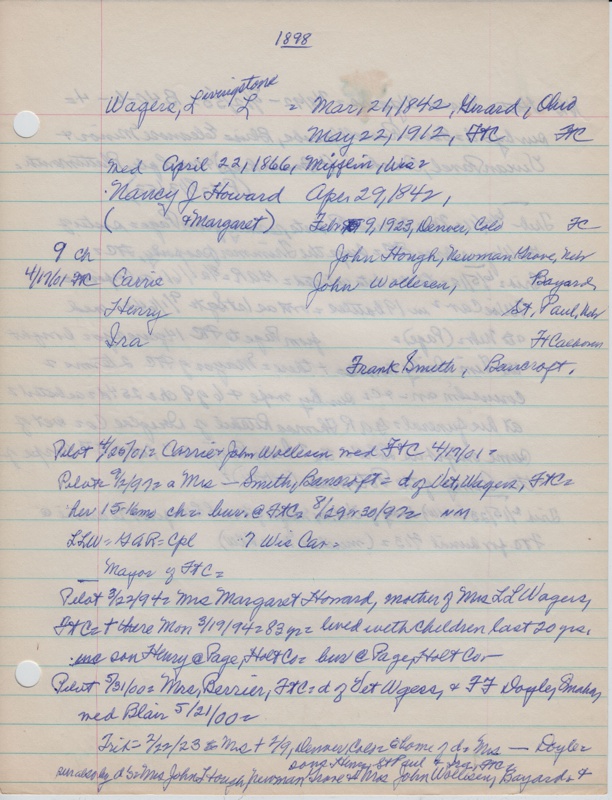 1898
Wagers, L Livingstone L = Mar, 21, 1842, Girard, Ohio
May 22, 1912, FtC FtC
med April 22, 1866, Mifflin, Wis=
Nancy J Howard Apr 29, 1842,
( + Margaret) Feb 9, 1923, Denver, Colo FC
9 ch John Hough, Newman Grove, Neb
4/17/01 FtC Carrie John Wollesen, Bayard,
Henry St. Paul, Neb
Ira Ft Calhoun
Frank Smith, Bancroft,
Pilot 4/25/01= Carrie + John Wollesen med FtC 4/17/01=
Pilot= 9/2/97= a Mrs — Smith, Bancroft = d of Vet Wagers, FtC=
her 15-16mo ch= bur. @ FtC= 8/29 or 30/97= NM
LLW= GAR= Cpl 7 Wis Cav=
Mayor of FtC=
Pilot 3/22/94= Mrs Margaret Howard, mother of Mrs LL Wagers,
FtC= + there Mon 3/19/94= 83 yr= lived with children last 20 yrs.
son Henry @ Page, Holt Co= bur @ Page, Holt Co-
Pilot 5/31/00= Mrs, Berrier, FtC= d of Vet Wgess, + FF Doyle, Omaha,
med Blair 5/21/00=
Trib= 2/22/23 = Mrs + 2/9, Denver, Colo= @ home of d= Mrs — Doyle=
sons Henry, St Paul + Ira, FtC=
survived by d's= Mrs John Hough, Newman Grove + Mrs John Wollesen, Bayard= +